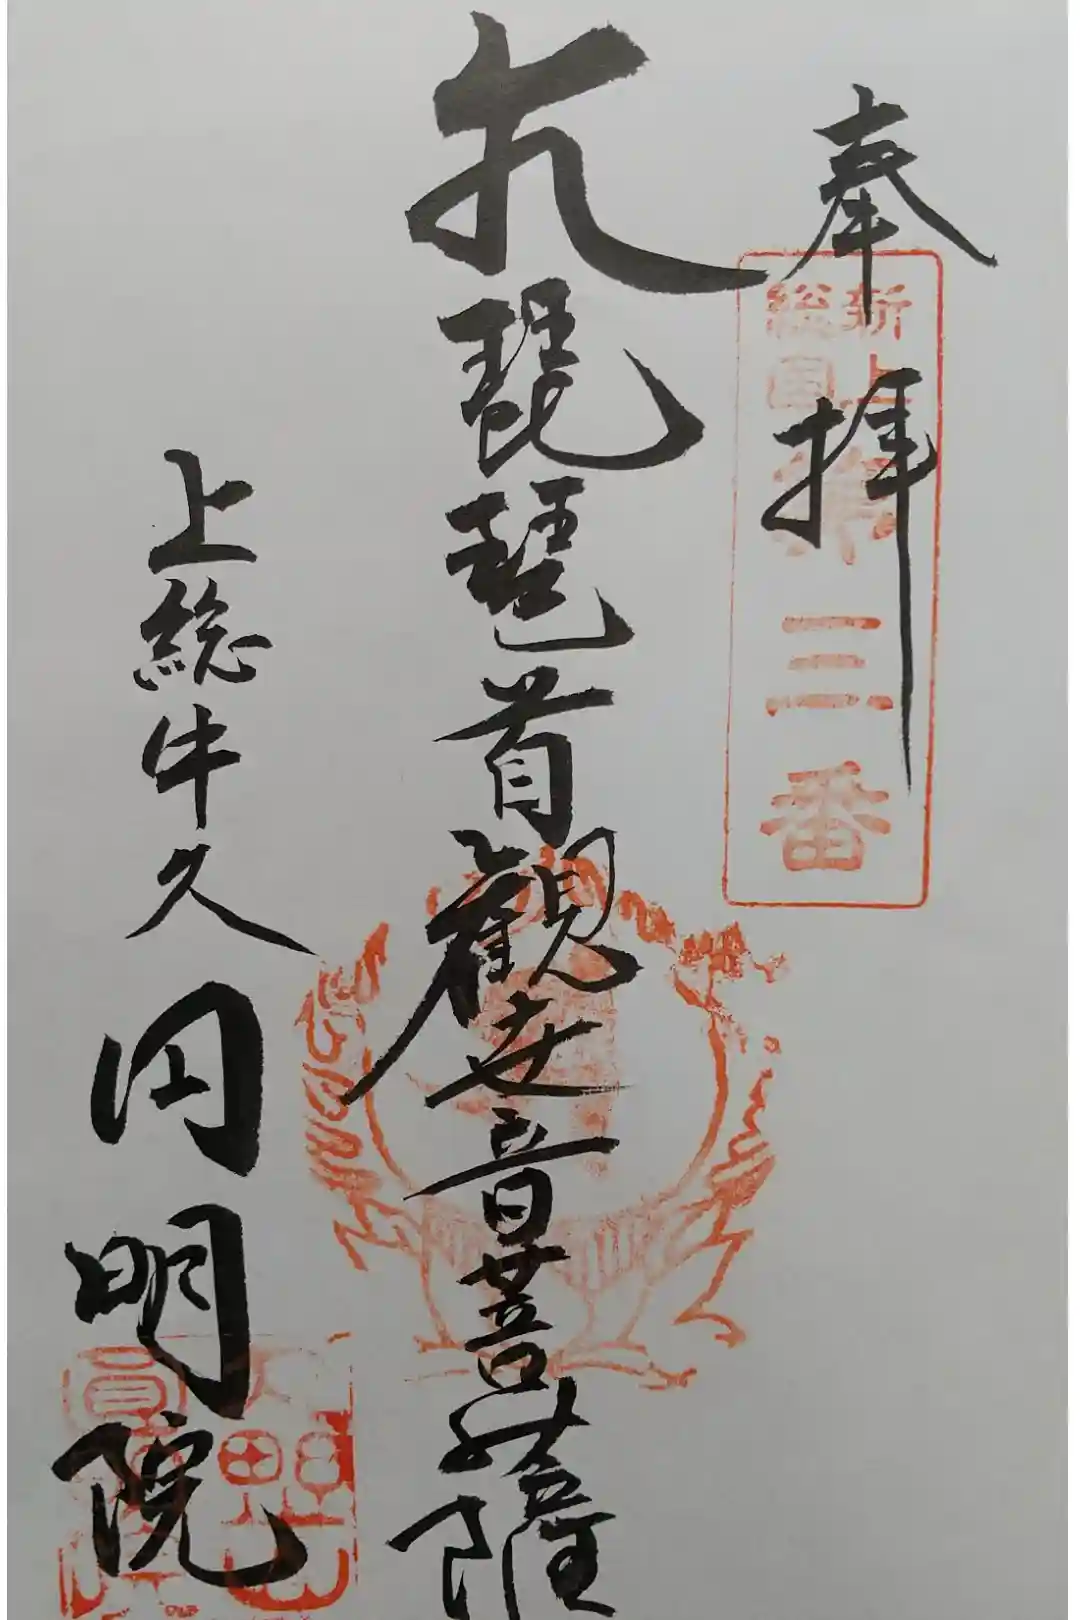 奉拝
新上
総国
第三番
琵琶首観世音菩薩
上総牛久
円明院